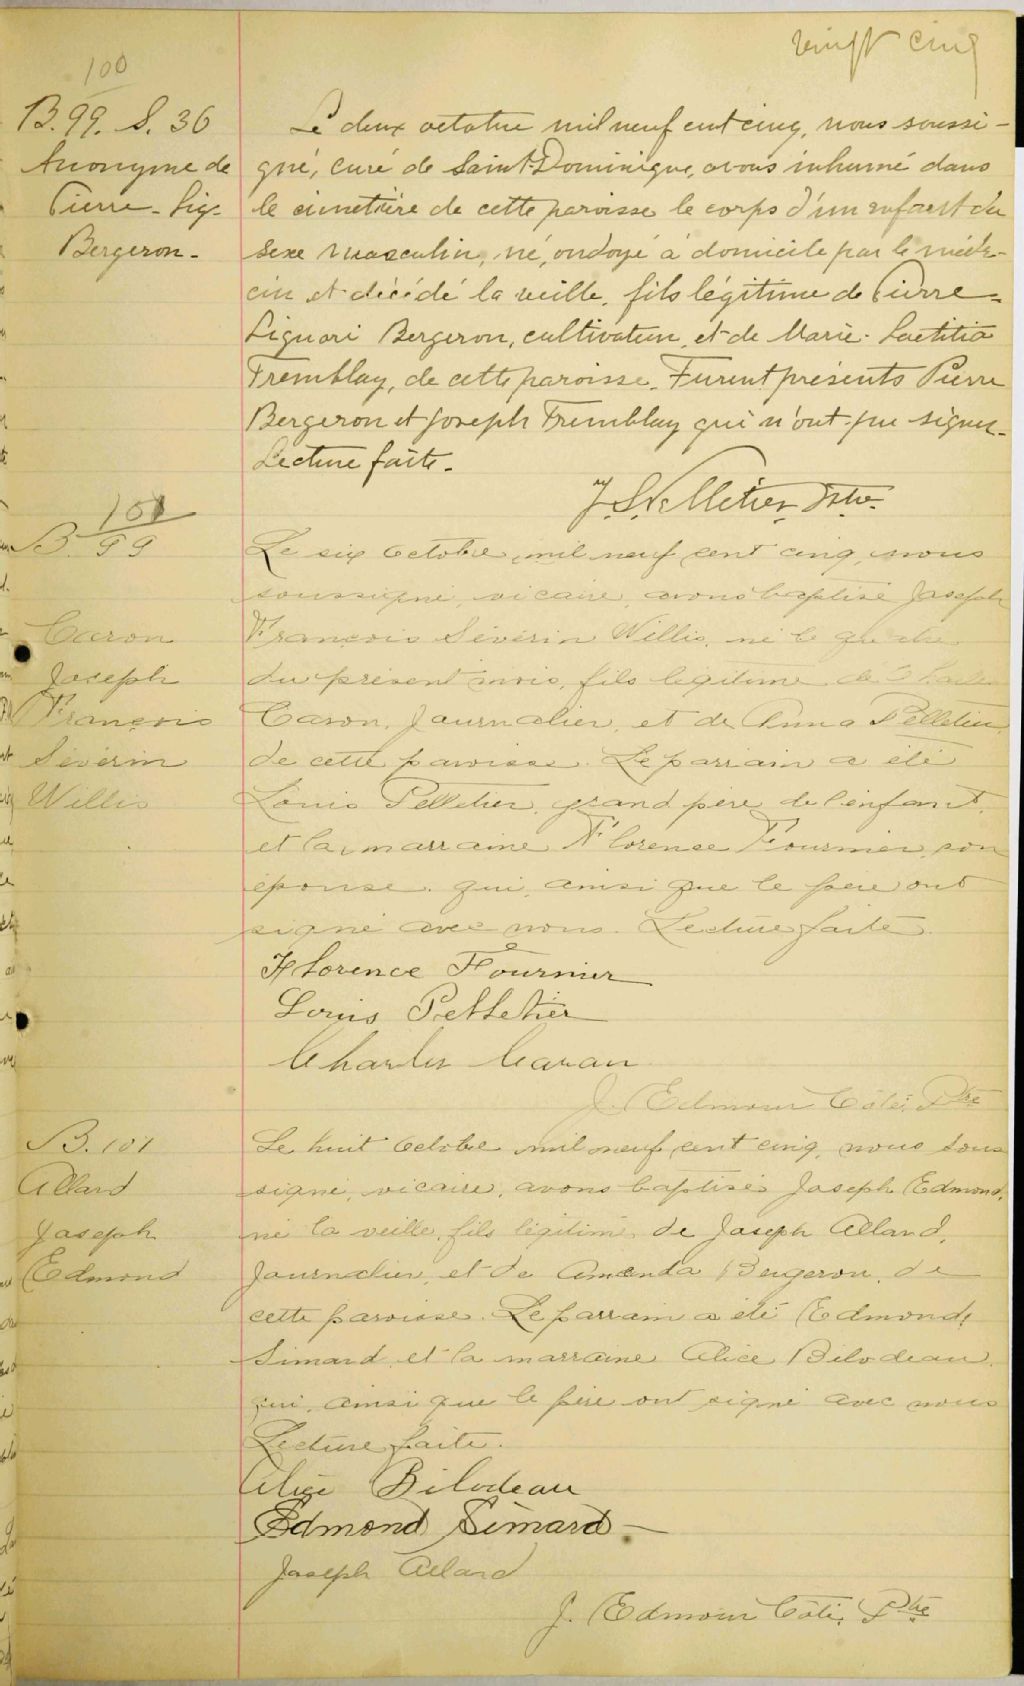 vingt cinq
100
B. 99. S. 36
Anonyme de
Pierre-Lig.
Bergeron.
Le deux octobre mil neuf cent cinq, nous soussi-
gné, curé de Saint-Dominique, avons inhumé dans
le cimetière de cette paroisse le corps d'un enfant du
sexe masculin, né, ondoyé à domicile par le méde-
cin et décédé la veille, fils légitime de Pierre-
Liguori Bergeron, cultivateur, et de Marie-Laetitia
Tremblay, de cette paroisse. Furent présents Pierre
Bergeron et Joseph Tremblay qui n'ont pu signer.
Lecture faite.
J. S. Pelletier, Ptre.
101
B. 99
Caron
Joseph
François
Sévérin
Willis
Le six Octobre, mil neuf cent cinq, nous
soussigné, vicaire, avons baptisé Joseph
François Sévérin Willis, né le quatre
du présent mois, fils légitime de Charles
Caron, Journalier, et de Anna Pelletier,
de cette paroisse. Le parrain a été
Louis Pelletier, grand père de l'enfant,
et la marraine Florence Fournier, son
épouse, qui, ainsi que le père ont
signé avec nous. Lecture faite.
Florence Fournier
Louis Pelletier
Charles Caran
J. Edmour Côté, Ptre
B. 101
Allard
Joseph
Edmond
Le huit Octobre mil neuf cent cinq, nous sous
signé, vicaire, avons baptisé Joseph Edmond,
né la veille, fils légitime de Joseph Allard,
Journalier, et de Amanda Bergeron, de
cette paroisse. Le parrain a été Edmond
Simard et la marraine Alice Bilodeau,
qui, ainsi que le père ont signé avec nous
Lecture faite.
Alice Bilodeau
Edmond Simard
Joseph Allard
J. Edmour Côté, Ptre